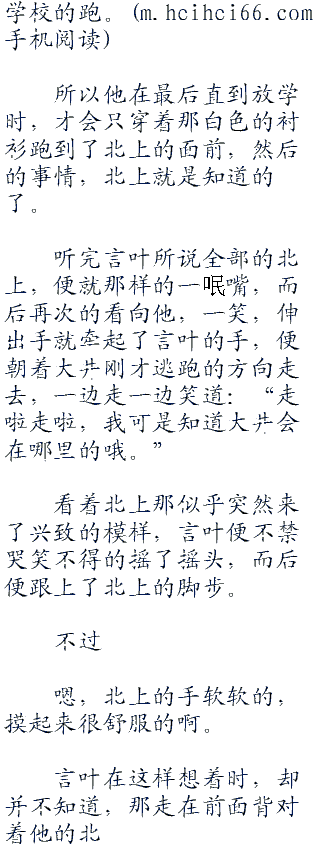 学校的跑。(m.hcihci66.com
手机阅读)
所以他在最后直到放学
时，才会只穿着那白色的衬
衫跑到了北上的面前，然后
的事情，北上就是知道的
了。
听完言叶所说全部的北
上，便就那样的一眠嘴，而
后再次的看向他，一笑，伸
出手就牵起了言叶的手，便
朝着大井刚才逃跑的方向走
去，一边走一边笑道：“走
啦走啦，我可是知道大井会
在哪里的哦。”
看着北上那似乎突然来
了兴致的模样，言叶便不禁
哭笑不得的摇了摇头，而后
便跟上了北上的脚步。
不过
嗯，北上的手软软的，
摸起来很舒服的啊。
言叶在这样想着时，却
并不知道，那走在前面背对
着他的北